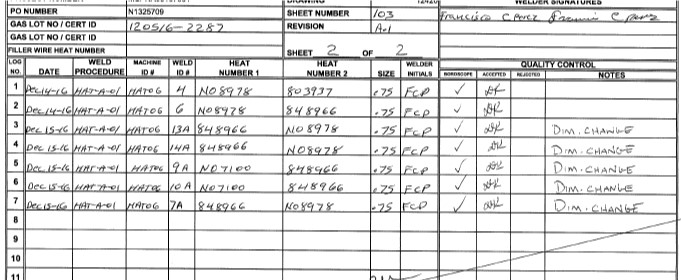 WELDER SIGNATURES
PO NUMBER N1325709 SHEET NUMBER 103 Francisco C Perez
GAS LOT NO / CERT ID 120516-2287 REVISION A-1
GAS LOT NO / CERT ID
FILLER WIRE HEAT NUMBER SHEET 2 OF 2
LOG NO. DATE WELD PROCEDURE MACHINE ID # WELD ID # HEAT NUMBER 1 HEAT NUMBER 2 SIZE WELDER INITIALS QUALITY CONTROL
BOROSCOPE ACCEPTED REJECTED NOTES
1 Dec 14-16 HAT-A-01 HAT06 4 NO8978 803937 .75 FCP ✓
2 Dec 14-16 HAT-A-01 HAT06 6 NO8978 848966 .75 FCP ✓
3 Dec 15-16 HAT-A-01 HAT06 13A 848966 NO8978 .75 FCP ✓ DIM. CHANGE
4 Dec 15-16 HAT-A-01 HAT06 14A 848966 NO8978 .75 FCP ✓ DIM. CHANGE
5 Dec 15-16 HAT-A-01 HAT06 9A NO7100 848966 .75 FCP ✓ DIM. CHANGE
6 Dec 15-16 HAT-A-01 HAT06 10A NO7100 848966 .75 FCP ✓ DIM. CHANGE
7 Dec 15-16 HAT-A-01 HAT06 7A 848966 NO8978 .75 FCP ✓ DIM. CHANGE
8
9
10
11